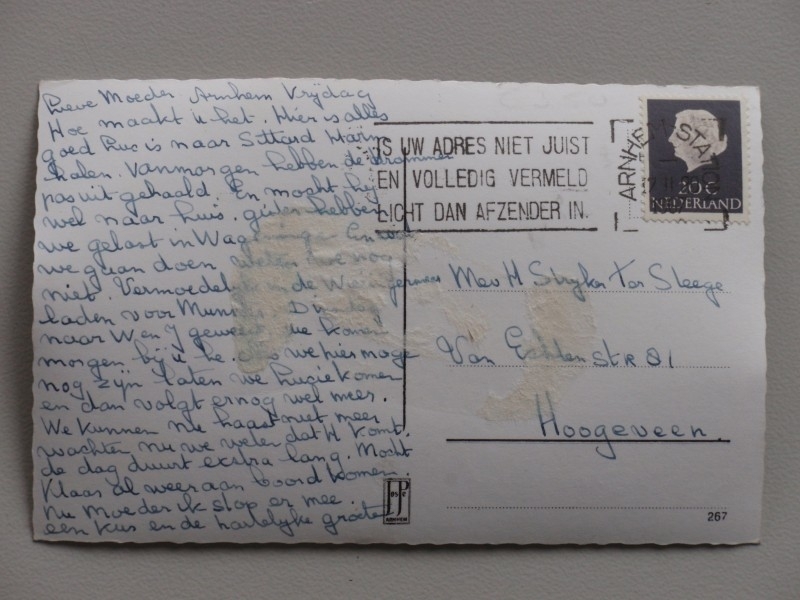 Lieve Moeder, Arnhem Vrijdag
Hoe maakt u het. Hier is alles
goed Ruc is naar Sittard
halen. Vanmorgen hebben de
pas uit gehaald. En mocht hij
wel naar huis. gister hebben
we gelost in En
we gaan doen weten we nog
niet. Vermoedelijk in de
laden voor
naar W en J geweest die komen
morgen bij u he. als we hier moge
nog zijn laten we komen
en dan volgt er nog wel meer.
We kunnen nu haast niet meer
wachten nu we weten dat H komt.
de dag duurt extra lang. Mocht
Klaas al weer aan boord komen.
Nu Moeder ik stop er mee.
een kus en de hartelijke groeten
IS UW ADRES NIET JUIST
EN VOLLEDIG VERMELD
LICHT DAN AFZENDER IN.
ARNHEM STATION
20 c
NEDERLAND
Mev H Stryker ter Steege
Van Echtenstr 81
Hoogeveen.
JP
267